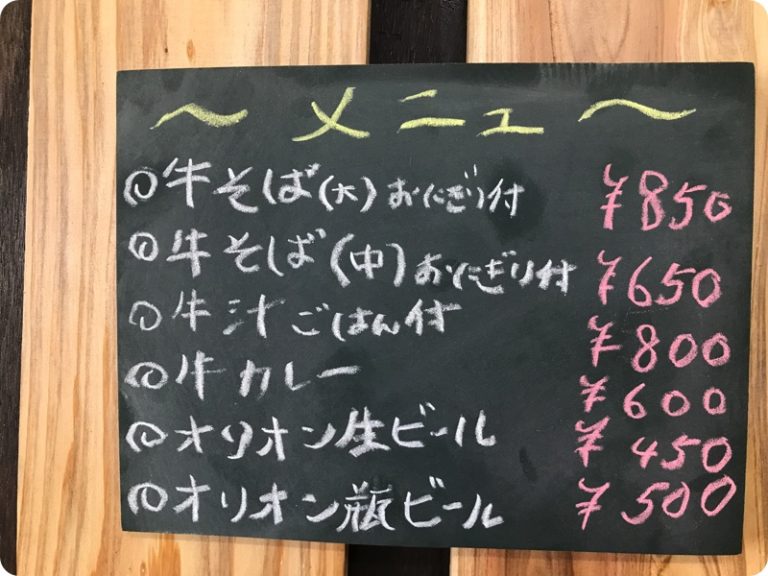 ～ メニュー ～
◎牛そば(大)おにぎり付 ¥850
◎牛そば(中)おにぎり付 ¥650
◎牛汁ごはん付 ¥800
◎牛カレー ¥600
◎オリオン生ビール ¥450
◎オリオン瓶ビール ¥500